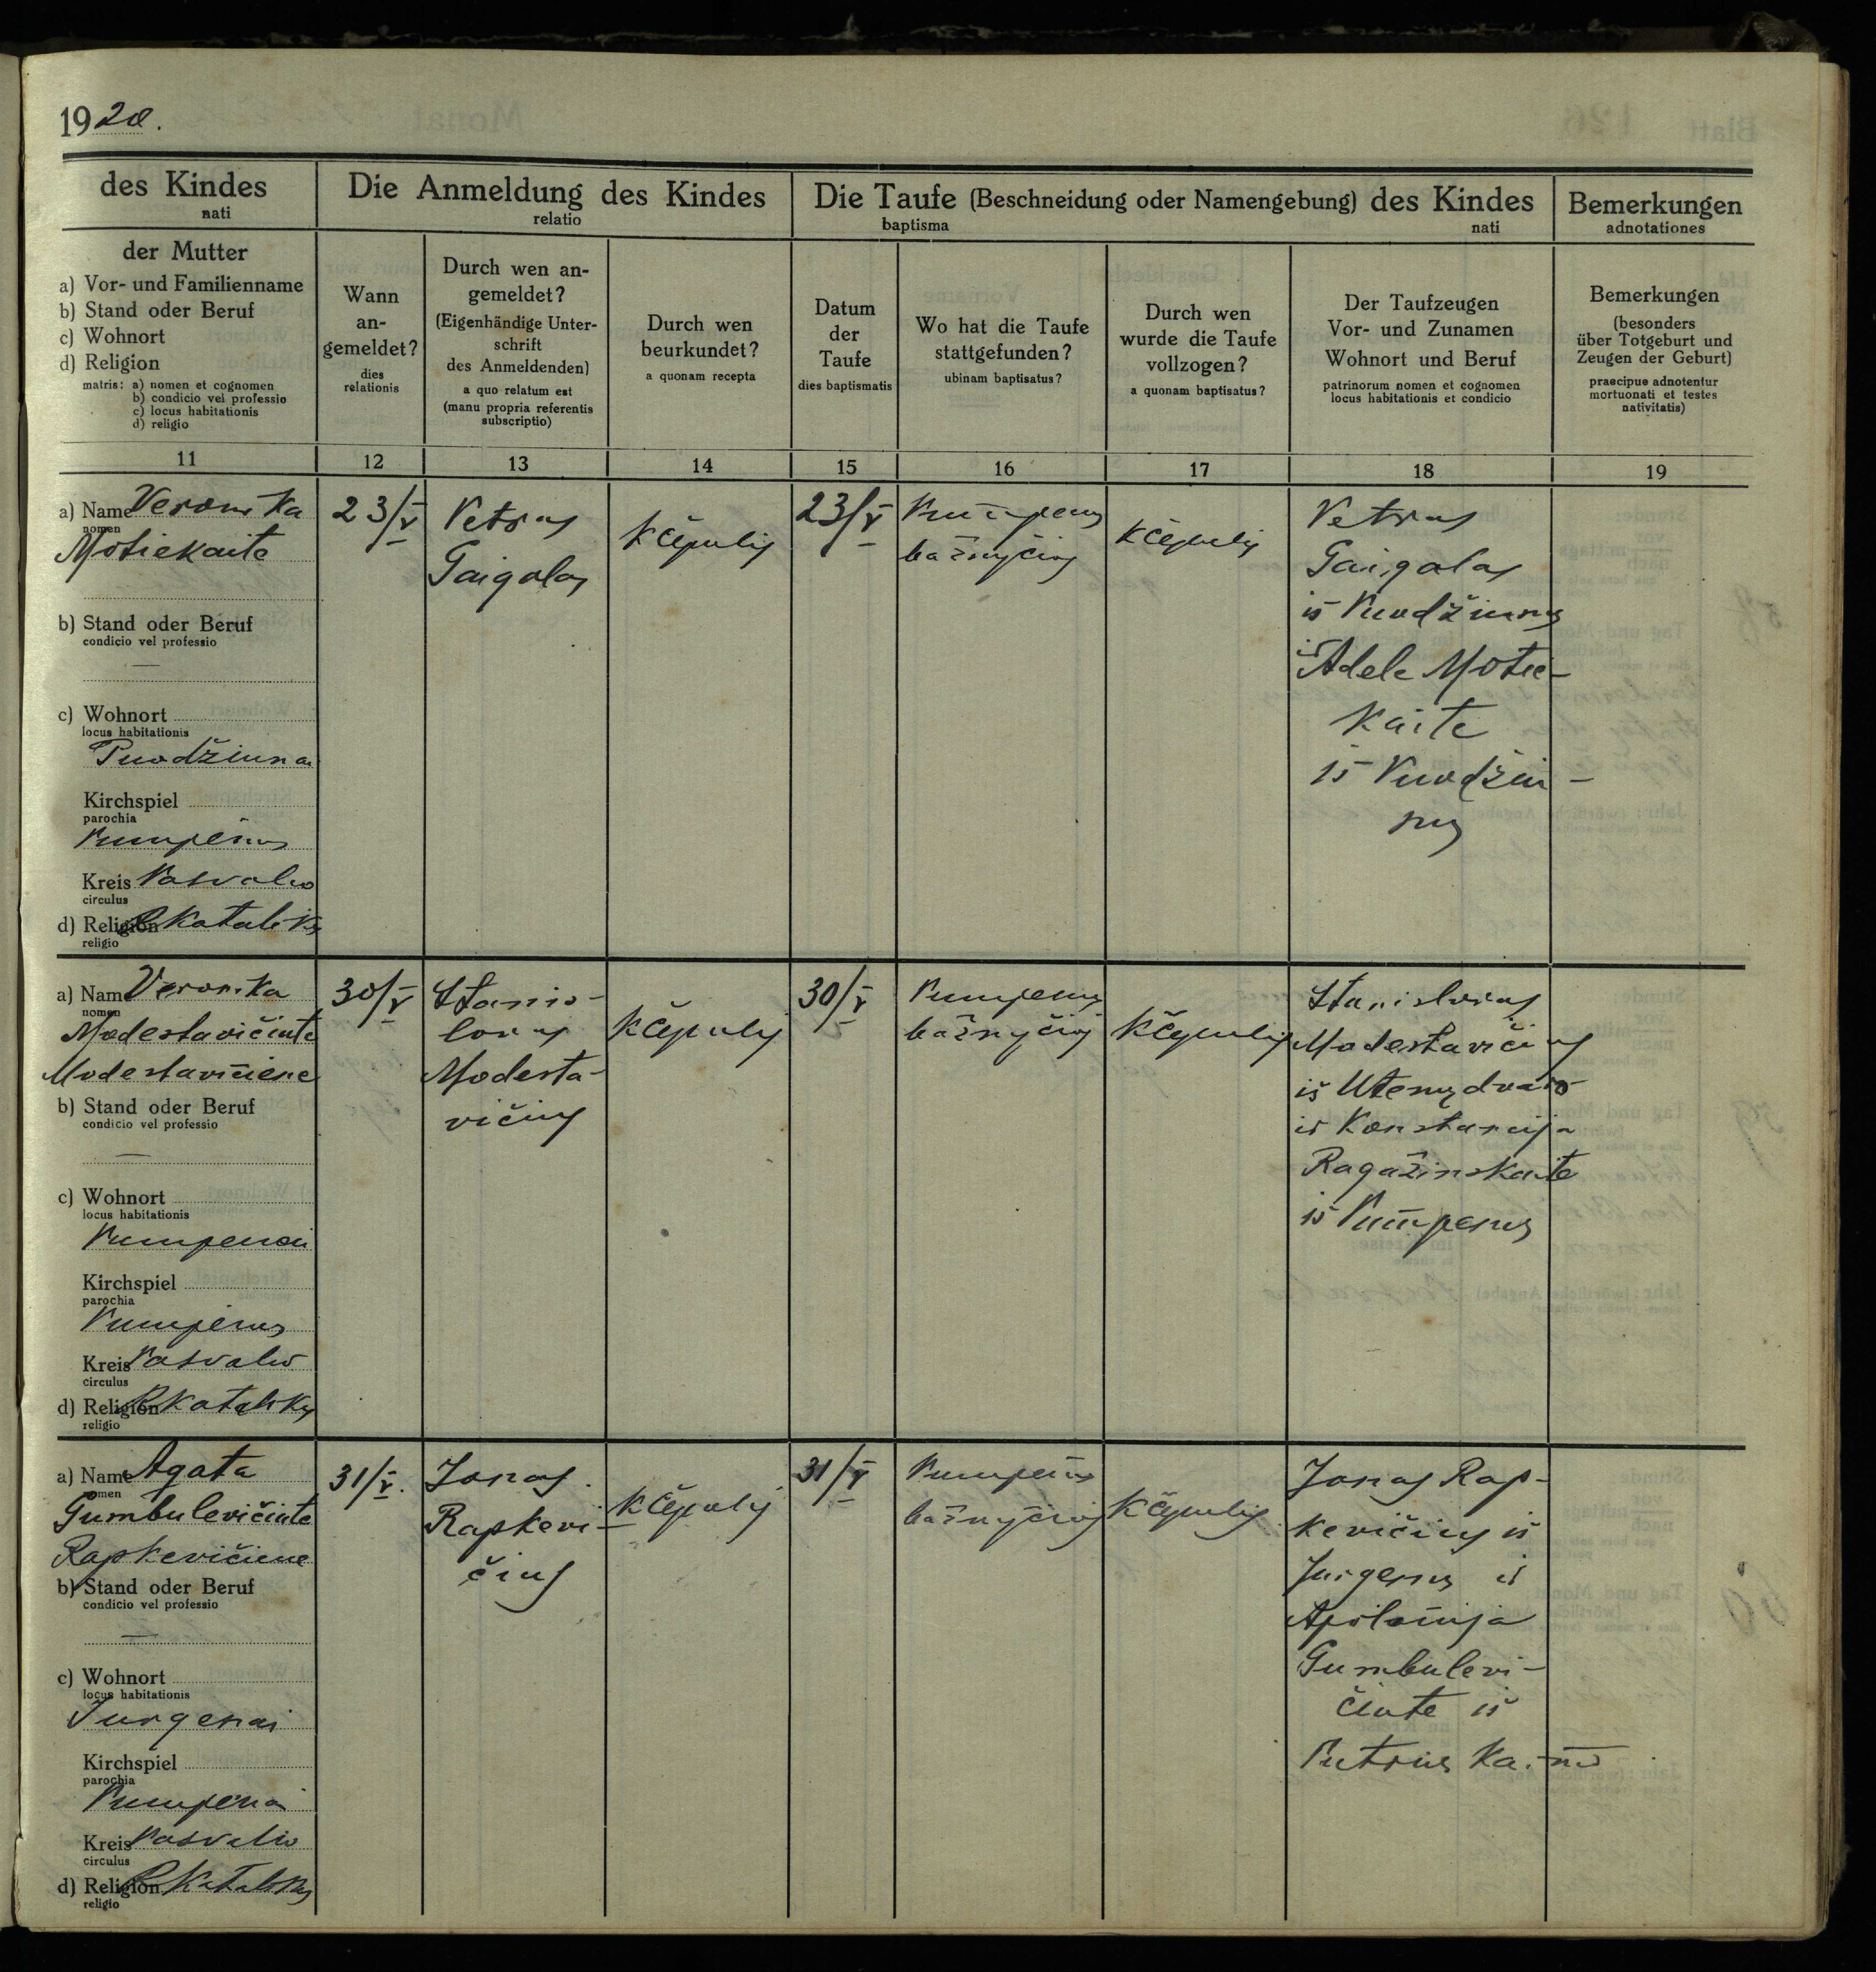 1920.
des Kindes
nati
Die Anmeldung des Kindes
relatio
Die Taufe (Beschneidung oder Namengebung) des Kindes
baptisma nati
Bemerkungen
adnotationes
der Mutter
a) Vor- und Familienname
b) Stand oder Beruf
c) Wohnort
d) Religion
matris: a) nomen et cognomen
b) condicio vel professio
c) locus habitationis
d) religio
Wann
an-
gemeldet?
dies
relationis
Durch wen an-
gemeldet?
(Eigenhändige Unter-
schrift
des Anmeldenden)
a quo relatum est
(manu propria referentis
subscriptio)
Durch wen
beurkundet?
a quonam recepta
Datum
der
Taufe
dies baptismatis
Wo hat die Taufe
stattgefunden?
ubinam baptisatus?
Durch wen
wurde die Taufe
vollzogen?
a quonam baptisatus?
Der Taufzeugen
Vor- und Zunamen
Wohnort und Beruf
patrinorum nomen et cognomen
locus habitationis et condicio
Bemerkungen
(besonders
über Totgeburt und
Zeugen der Geburt)
praecipue adnotentur
mortuonati et testes
nativitatis)
11 12 13 14 15 16 17 18 19
a) Name Veronika
nomen
Motiekaite
b) Stand oder Beruf
condicio vel professio
—
c) Wohnort
locus habitationis
Puodžiunai
Kirchspiel
parochia
Pumpėnus
Kreis Pasvalio
circulus
d) Religion R Katalikų
religio
23/V
Petras
Gaigalas
K Čepulis
23/V
Pumpėnų
bažnyčioj
K Čepulis
Petras
Gaigalas
iš Puodžiunų
ir Adelė Motie-
kaite
iš Puodžiu-
nų
a) Name Veronika
nomen
Modestavičiute
Modestavičiene
b) Stand oder Beruf
condicio vel professio
—
c) Wohnort
locus habitationis
Pumpenai
Kirchspiel
parochia
Pumpėnus
Kreis Pasvalio
circulus
d) Religion R Katalikų
religio
30/V
Stanis-
lovas
Modesta-
vičius
K Čepulis
30/V
Pumpenų
bažnyčioj
K Čepulis
Stanislovas
Modestavičius
iš Utenų dvaro
ir Konstancija
Ragažinskaite
iš Pumpenų
a) Name Agota
nomen
Gumbulevičiute
Rapkevičiene
b) Stand oder Beruf
condicio vel professio
—
c) Wohnort
locus habitationis
Jurgenai
Kirchspiel
parochia
Pumpėnai
Kreis Pasvalio
circulus
d) Religion R Katalikų
religio
31/V.
Jonas
Rapkevi-
čius
K Čepulis
31/V
Pumpenų
bažnyčioj
K Čepulis
Jonas Rap-
kevičius iš
Jurgenų ir
Apolonija
Gumbulevi-
čiute iš
Putrių kaimo